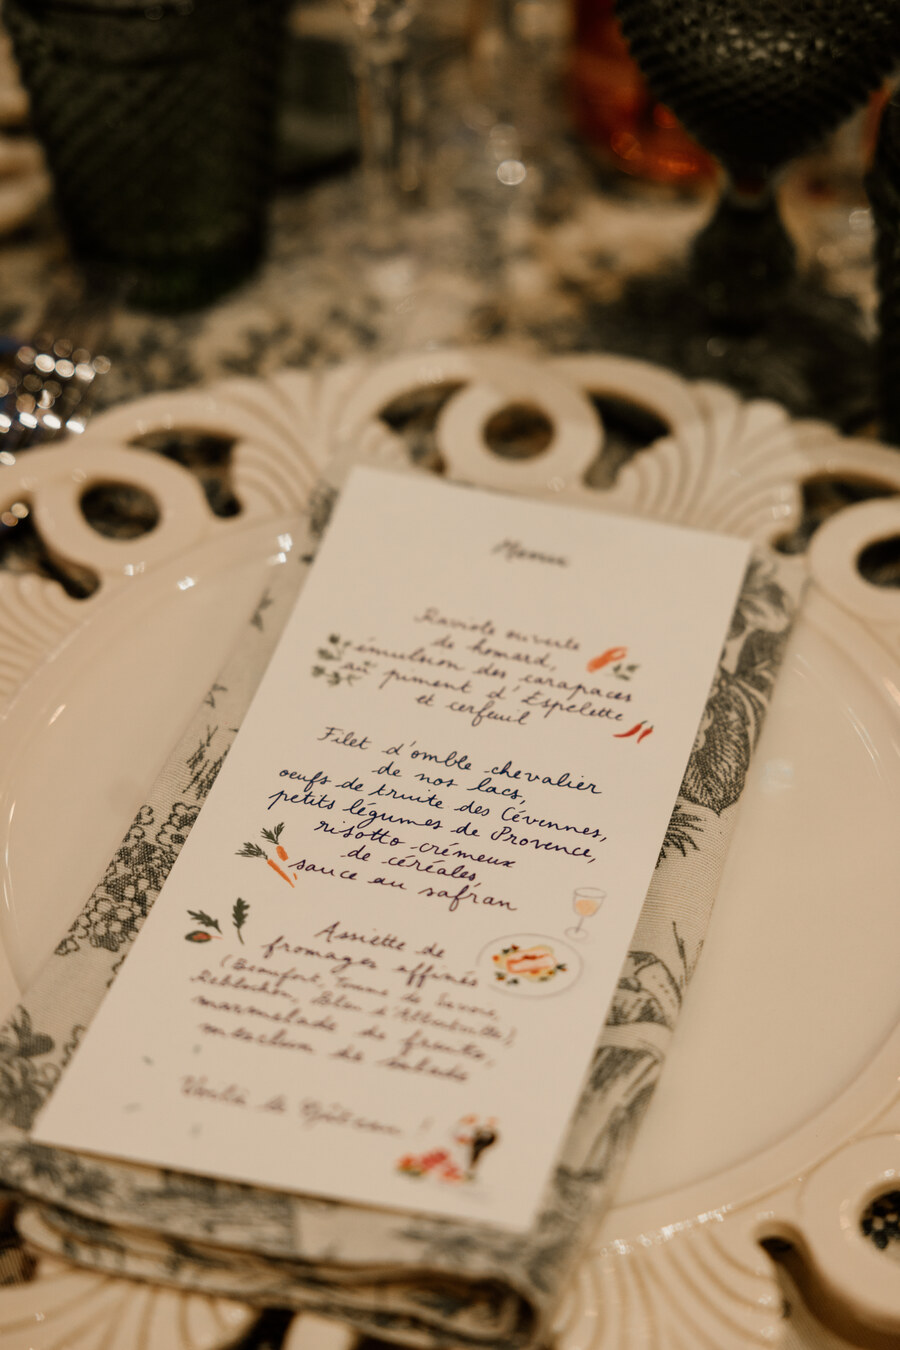 Menu
Raviole ouverte
de homard,
émulsion des carapaces
au piment d'Espelette
et cerfeuil
Filet d'omble chevalier
de nos lacs,
oeufs de truite des Cévennes,
petits légumes de Provence,
risotto crémeux
de céréales,
sauce au safran
Assiette de
fromages affinés
(Beaufort, Tome de Savoie,
Reblochon, Bleu
marmelade de fruits,
mesclun de salade